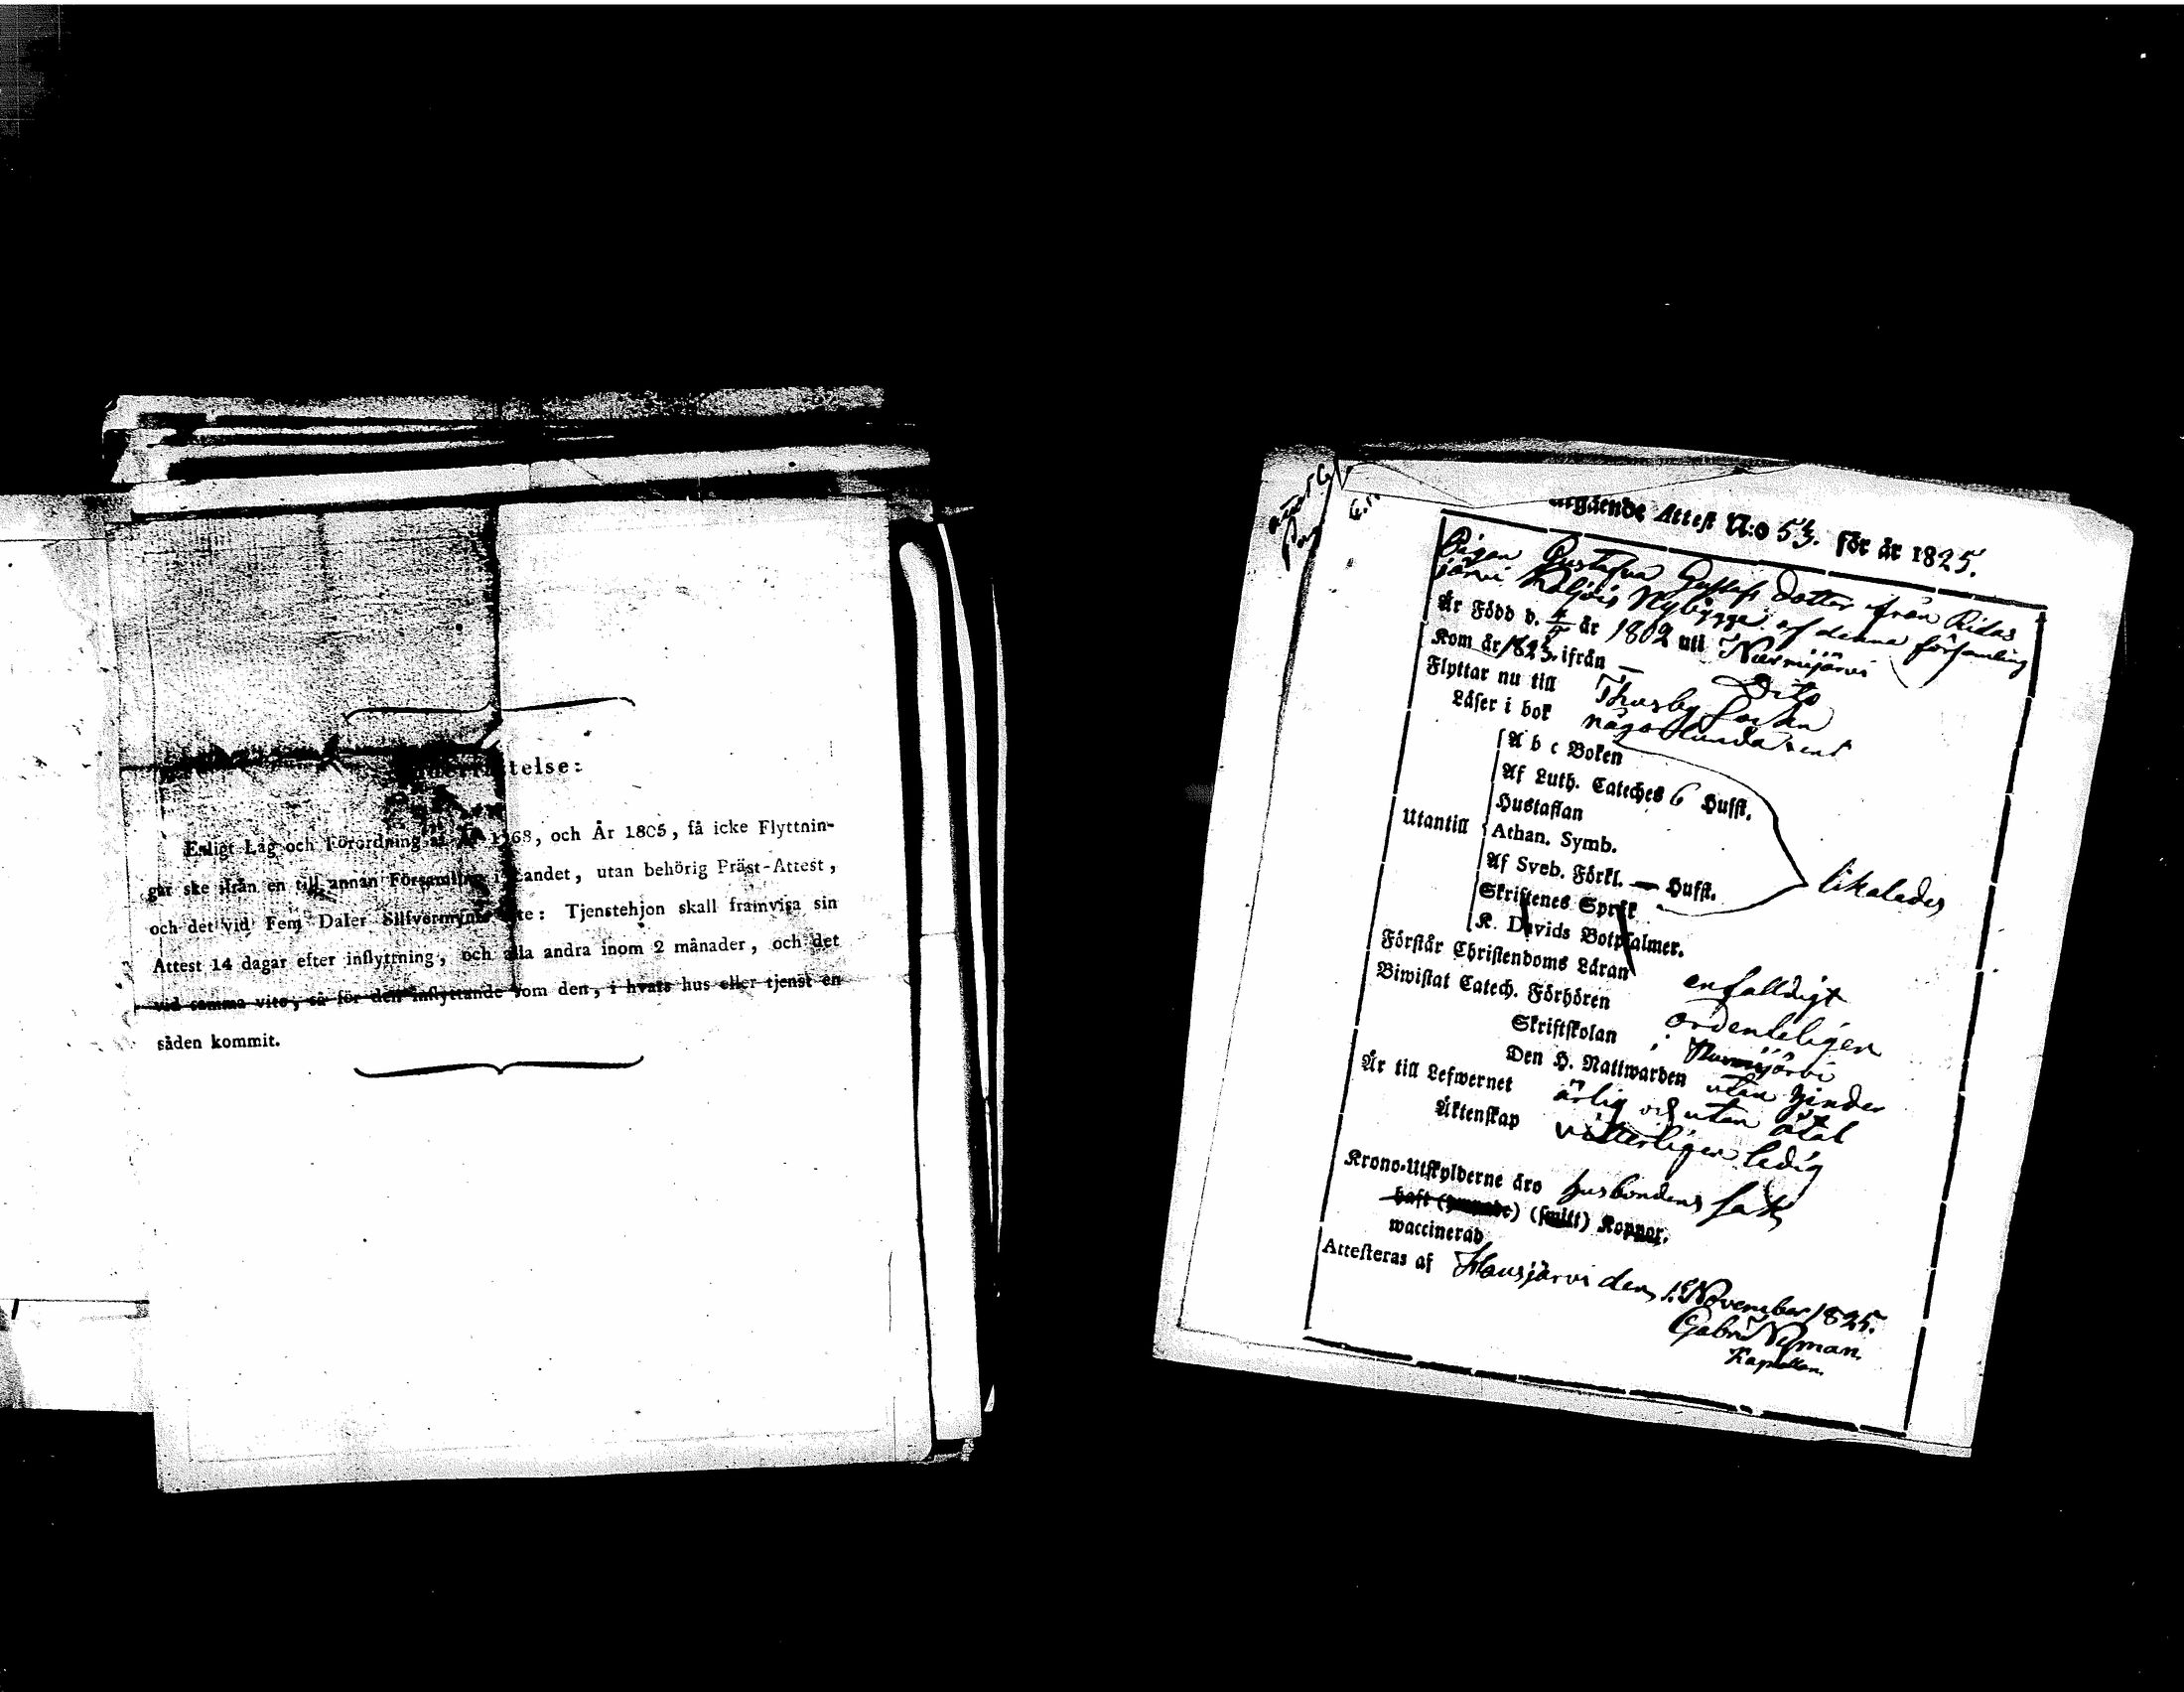 telse:
Enligt Lag och Förordning af År 1768, och År 1805, få icke Flyttnin-
gar ske ifrån en till annan Församling i Landet, utan behörig Präst-Attest,
och det vid Fem Daler Silfvermynts vite: Tjenstehjon skall framvisa sin
Attest 14 dagar efter inflyttning, och alla andra inom 2 månader, och det
vid samma vite, så för den inflyttande som den, i hvars hus eller tjenst en
såden kommit.
utgående Attest N:o 53. för år 1825.
Pigan Gustafva Gustafs dotter ifrån Ridas
järvi Nybygge af denna församling
Är Född d. 4/5 år 1802 uti Nurmijärvi
Kom år 1823. ifrån — Dito
Flyttar nu till Thusby Sockn
Läser i bok någorlunda rent
A b c Boken
Af Luth. Cateches 6 Hufst.
Hustaflan
Utantill Athan. Symb. likaledes
Af Sveb. Förkl. — Hufst.
Skriftenes Språk
K. Davids Botpsalmer.
Förstår Christendoms Läran enfalldigt
Biwistat Catech. Förhören ordenteligen
Skriftskolan i Nurmijärvi
Den H. Nattwarden utan hinder
Är till Lefwernet ärlig och utan åtal
Äktenskap vitterligen ledig
Krono-Utskylderne äro husbondens sak
haft () (smitt) Koppor.
waccinerad
Attesteras af Hausjärvi den 1. November 1825.
Gabriel Nyman.
Kapellan.